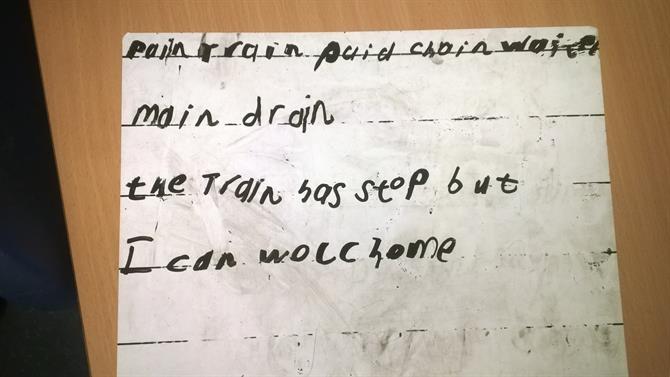 pain train paid chain wait
main drain
the Train has stop but
I can wocc home